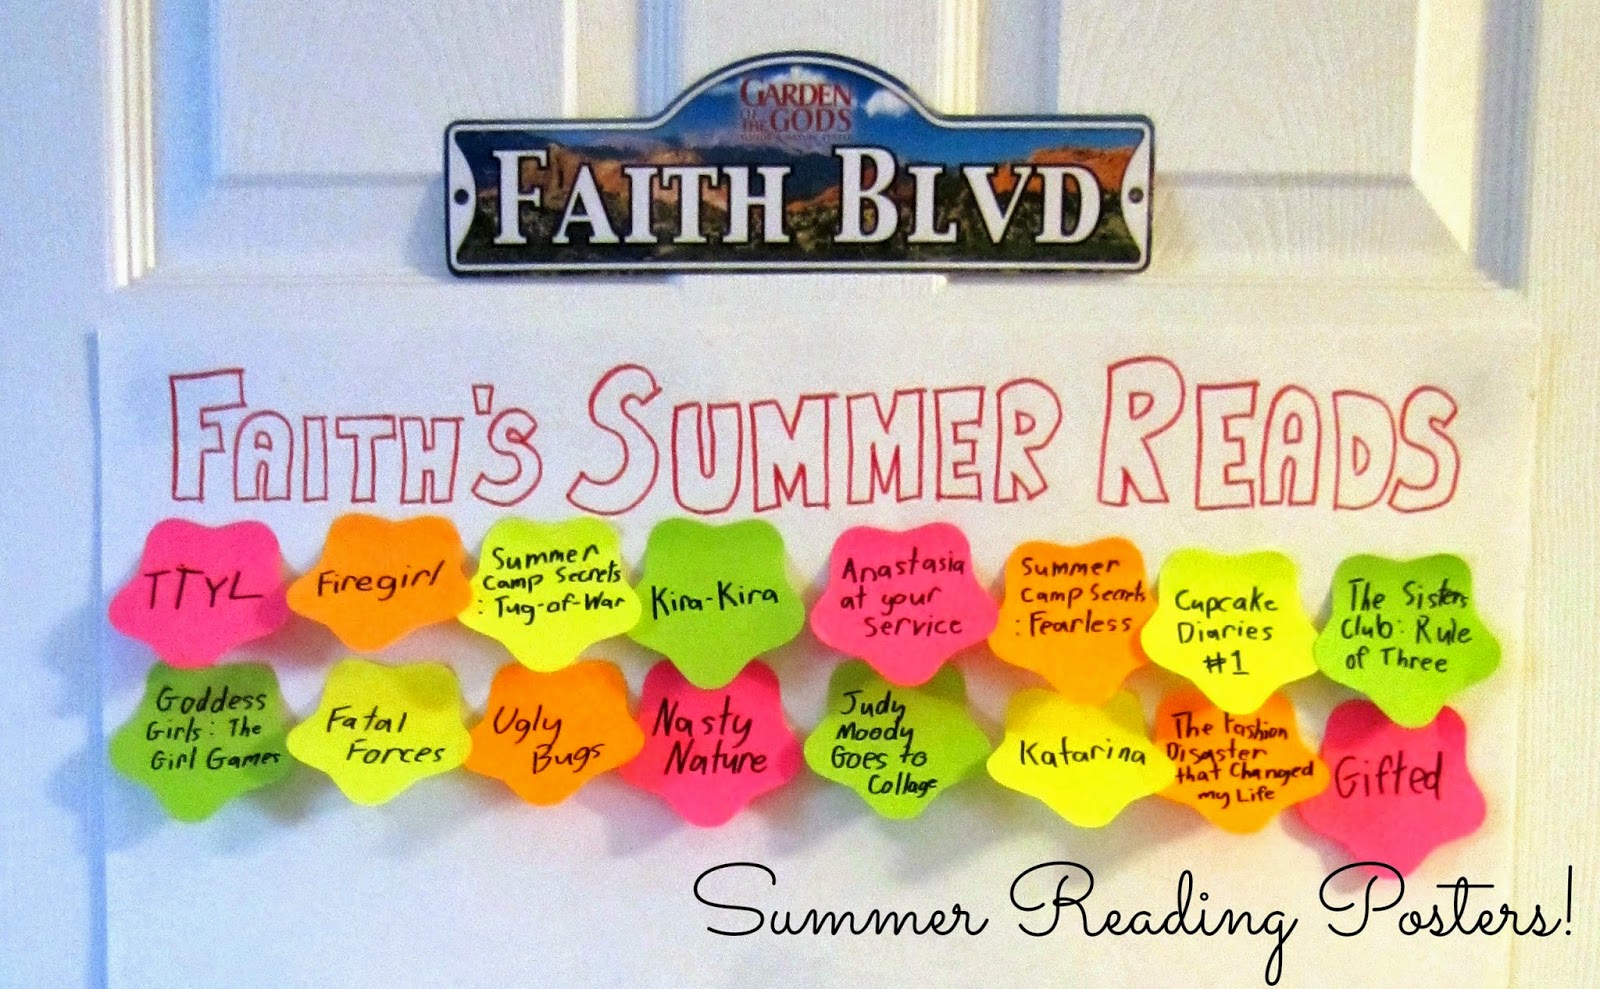 GARDEN
OF THE GODS
FAITH BLVD
FAITH'S SUMMER READS
TTYL
Firegirl
Summer
Camp Secrets
: Tug-of-War
Kira-Kira
Anastasia
at your
Service
Summer
Camp Secrets
: Fearless
Cupcake
Diaries
#1
The Sisters
Club: Rule
of Three
Goddess
Girls: The
Girl Games
Fatal
Forces
Ugly
Bugs
Nasty
Nature
Judy
Moody
Goes to
Collage
Katarina
The Fashion
Disaster
that Changed
my Life
Gifted
Summer Reading Posters!